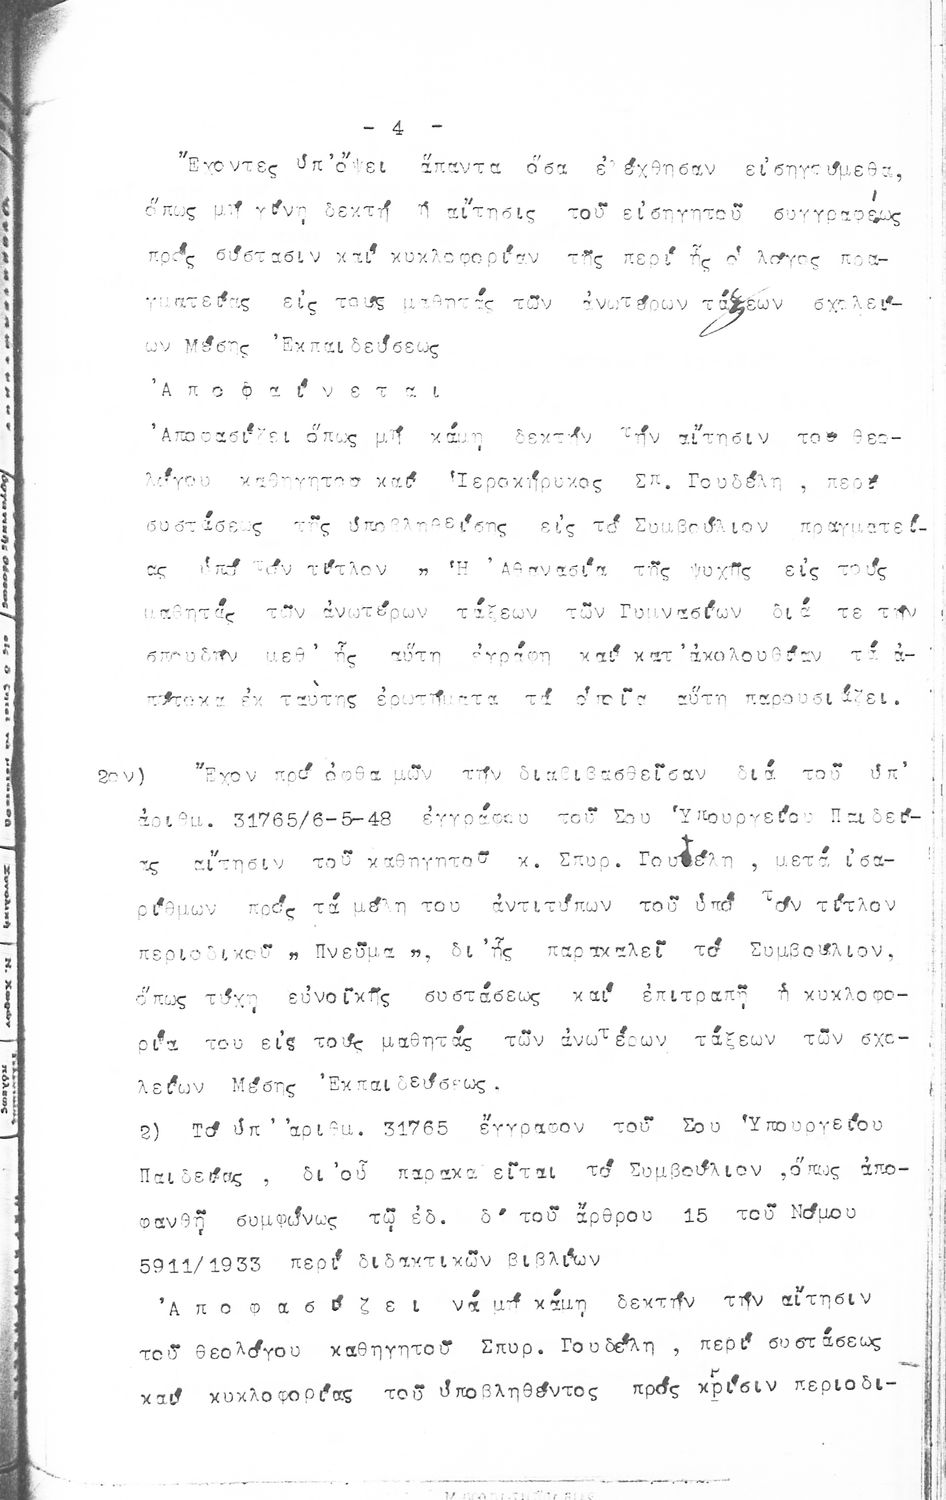 - 4 -
Ἔχοντες ὑπ' ὄψει ἅπαντα ὅσα ἐλέχθησαν εἰσηγούμεθα,
ὅπως μή γίνῃ δεκτή ἡ αἴτησις τοῦ εἰσηγητοῦ συγγραφέως
πρός σύστασιν καί κυκλοφορίαν τῆς περί ἧς ὁ λόγος πρα-
γματείας εἰς τούς μαθητάς τῶν ἀνωτέρων τάξεων σχολεί-
ων Μέσης Ἐκπαιδεύσεως
Ἀ π ο φ α ί ν ε τ α ι
Ἀποφασίζει ὅπως μή κάμῃ δεκτήν τήν αἴτησιν του θεο-
λόγου καθηγητοῦ καί Ἱεροκήρυκος Σπ. Γουδέλη , περί
συστάσεως τῆς ὑποβληθείσης εἰς τό Συμβούλιον πραγματεί-
ας ὑπό τόν τίτλον „ Ἡ Ἀθανασία τῆς ψυχῆς εἰς τούς
μαθητάς τῶν ἀνωτέρων τάξεων τῶν Γυμνασίων διά τε τήν
σπουδήν μεθ' ἧς αὕτη ἐγράφη καί κατ' ἀκολουθίαν τά ἀ-
πότοκα ἐκ ταύτης ἐρωτήματα τά ὁποῖα αὕτη παρουσιάζει.
2ον) Ἔχον πρό ὀφθαλμῶν τήν διαβιβασθεῖσαν διά τοῦ ὑπ'
ἀριθμ. 31765/6-5-48 ἐγγράφου τοῦ Σου Ὑπουργείου Παιδεί-
ας αἴτησιν τοῦ καθηγητοῦ κ. Σπυρ. Γουδέλη , μετά ἰσα-
ρίθμων πρός τά μέλη του ἀντιτύπων τοῦ ὑπό τόν τίτλον
περιοδικοῦ „ Πνεῦμα „, δι' ἧς παρακαλεῖ τό Συμβούλιον,
ὅπως τύχῃ εὐνοϊκῆς συστάσεως καί ἐπιτραπῇ ἡ κυκλοφο-
ρία του είς τούς μαθητάς τῶν ἀνωτέρων τάξεων τῶν σχο-
λείων Μέσης Ἐκπαιδεύσεως.
2) Τό ὑπ' ἀριθμ. 31765 ἔγγραφον τοῦ Σου Ὑπουργείου
Παιδείας , δι' οὗ παρακαλεῖται τό Συμβούλιον ,ὅπως ἀπο-
φανθῇ συμφώνως τῷ ἐδ. δ' τοῦ ἄρθρου 15 τοῦ Νόμου
5911/1933 περί διδακτικῶν βιβλίων
Ἀ π ο φ α σ ί ζ ε ι νά μή κάμῃ δεκτήν τήν αἴτησιν
τοῦ θεολόγου καθηγητοῦ Σπυρ. Γουδέλη , περί συστάσεως
καί κυκλοφορίας τοῦ ὑποβληθέντος πρός κρίσιν περιοδι-